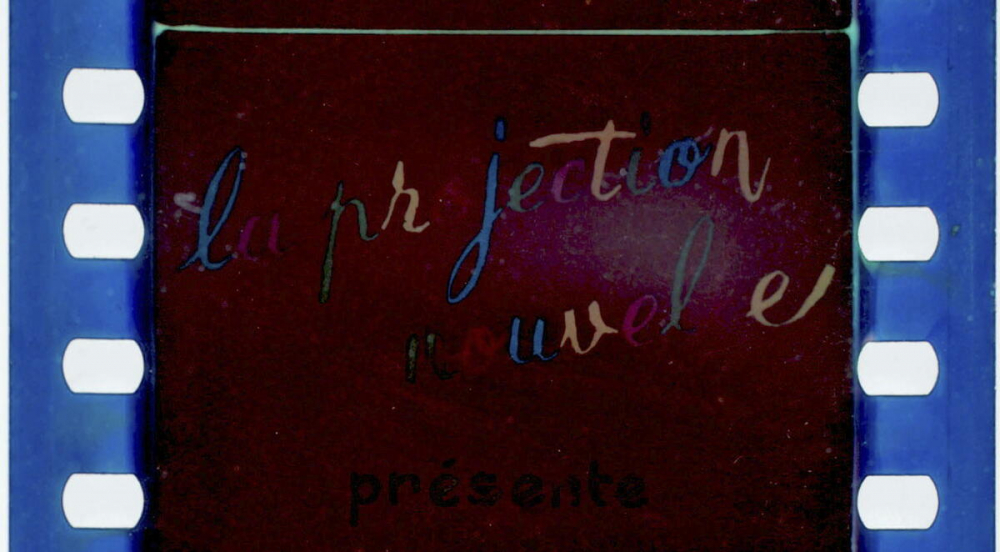 la projection
nouvelle
présente